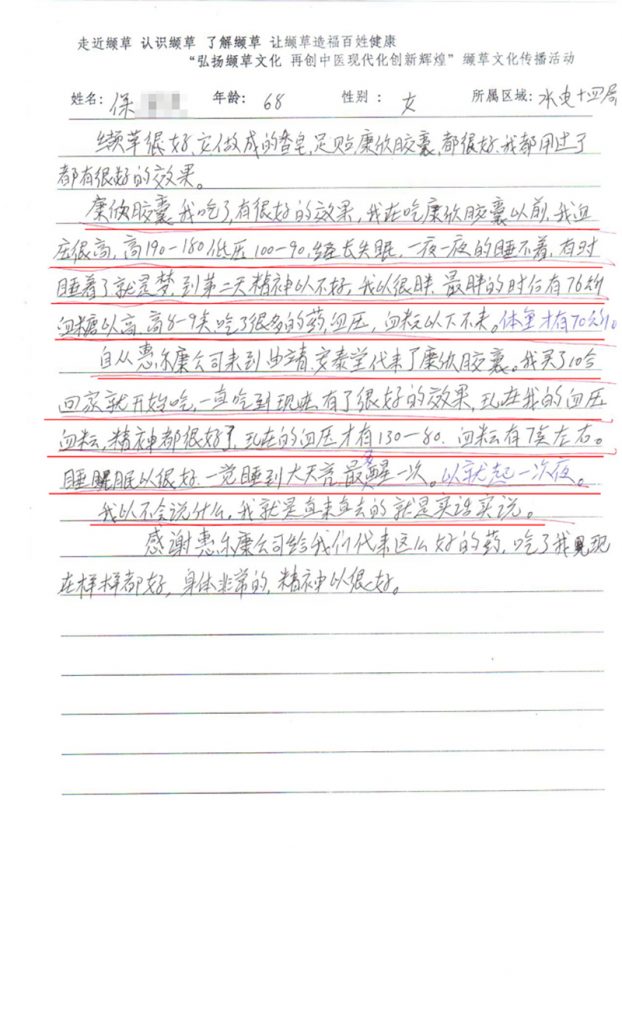 走近缬草 认识缬草 了解缬草 让缬草造福百姓健康
“弘扬缬草文化 再创中医现代化创新辉煌”缬草文化传播活动
姓名: 保 年龄: 68 性别: 女 所属区域: 水电十四局
缬草很好,它做成的香皂,足贴,康欣胶囊,都很好.我都用过了
都有很好的效果。
康欣胶囊我吃了,有很好的效果,我在吃康欣胶囊以前,我血
压很高,高190-180低压100-90,经长失眠,一夜一夜的睡不着,有时
睡着了就是梦,到第二天精神以不好,我以很胖.最胖的时后有76公斤
血糖以高,高8-9点吃了很多的药,血压,血糖以下不来。体重才有70公斤。
自从惠尔康公司来到曲靖,安泰堂代来了康欣胶囊。我买了10合
回家就开始吃,一直吃到现在有了很好的效果,现在我的血压
血糖,精神都很好了,现在的血压才有130-80.血糖有7点左右。
睡眠以很好.一觉睡到大天亮最多醒一次。以就起一次夜。
我以不会说什么,我就是直来直去的就是实话实说。
感谢惠尔康公司给我们代来这么好的药,吃了我现
在样样都好,身体非常的,精神以很好。